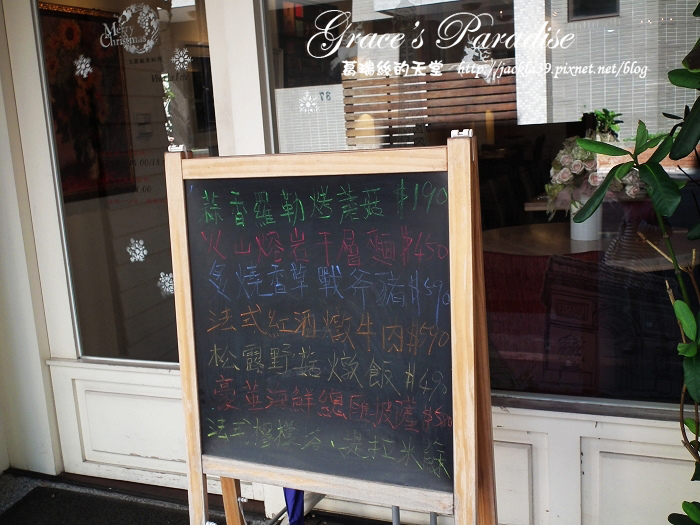 Merry
Christmas
Grace's Paradise
葛瑞絲的天堂 http://jackla39.pixnet.net/blog
37
蒜香羅勒烤蘑菇 $190
火山熔岩千層麵 $450
炙燒香草戰斧豬 $590
法式紅酒燉牛肉 $590
松露野菇燉飯 $490
豪華海鮮總匯披薩 $580
法式檸檬派、提拉米蘇